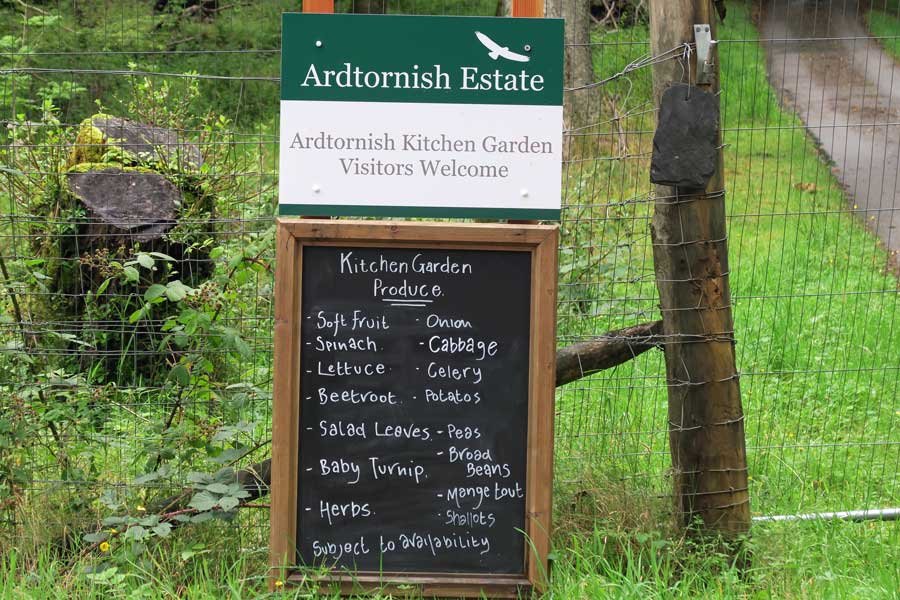 Ardtornish Estate
Ardtornish Kitchen Garden
Visitors Welcome
Kitchen Garden
Produce.
- Soft Fruit
- Spinach.
- Lettuce
- Beetroot.
- Salad Leaves.
- Baby Turnip.
- Herbs.
- Onion
- Cabbage
- Celery
- Potatos
- Peas
- Broad
Beans
- Mange tout
- Shallots
Subject to availability